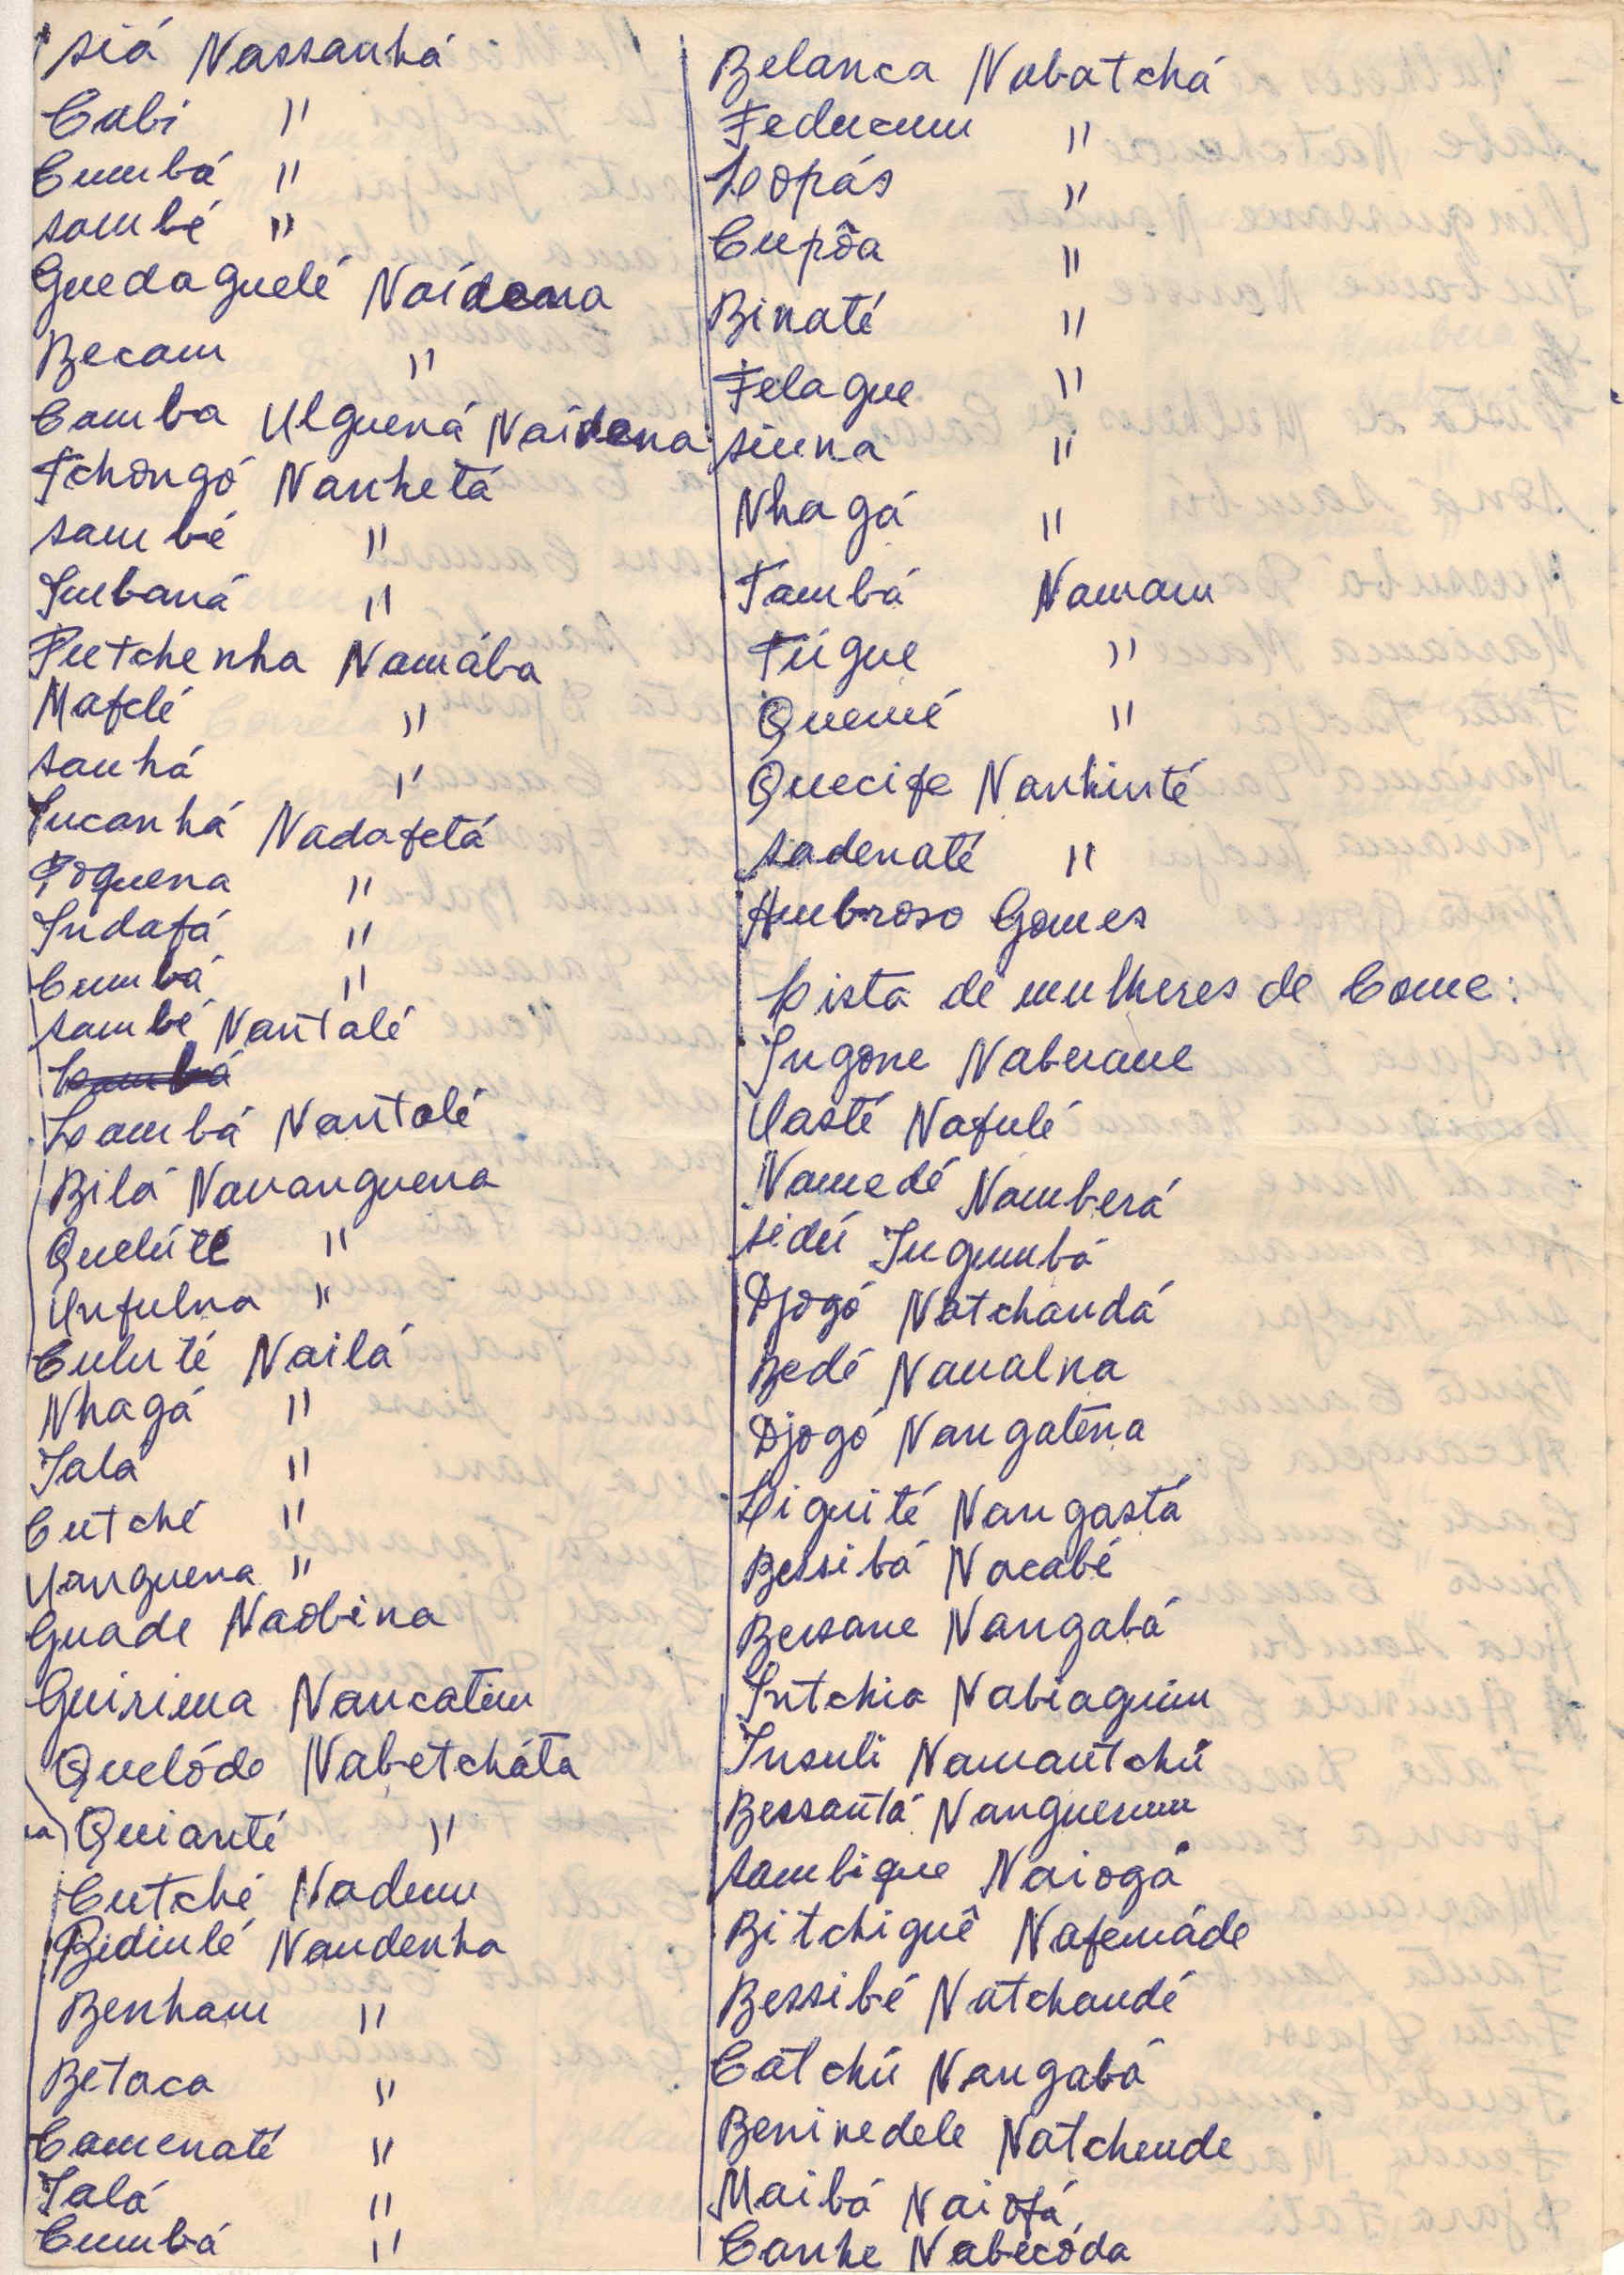 Siá Nassanhá
Cabi "
Cumbá "
Sambé "
Guedaguelé Naídena
Becam "
Camba Ulguená Naídena
Tchongó Nanhetá
Sambé "
Imbaná "
Putchenha Namába
Mafelé "
Sanhá "
Incanhá Nadafetá
Poguena "
Indafá "
Cumbá "
Sambé Nantalé
Lambá Nantalé
Bilá Nananguena
Quelúté "
Unfulna "
Culuté Nailá
Nhagá "
Ialá "
Cutché "
Uanguena "
Guade Naobina
Guirima Nancatim
Quelóde Nabetcháta
Quianté "
Cutché Nadum
Bidinlé Nandenha
Benham "
Betaca "
Camenaté "
Ialá "
Cumbá "
Belanca Nabatchá
Feducum "
Lopás "
Cupôa "
Binaté "
Felague "
Siuna "
Nhagá "
Tambá Namam
Túgue "
Quemé "
Quecife Nanhinté
Sadenaté "
Ambroso Gomes
Lista de mulheres de Come:
Ingone Naberame
Uasté Nafulé
Namedé Namberá
Sidú Ingumbá
Djogó Natchandá
Bedé Naualna
Djogó Nangaténa
Liguité Nangastá
Bessibá Nacabé
Bensane Nangabá
Intchia Nabiaguim
Insuli Namantchú
Bessantá Nanguenum
Sambique Naiogá
Bitchiguê Nafemáde
Bessibé Natchandé
Catchú Nangabá
Beninedele Natchende
Maibá Naiofá
Canhe Nabecóda